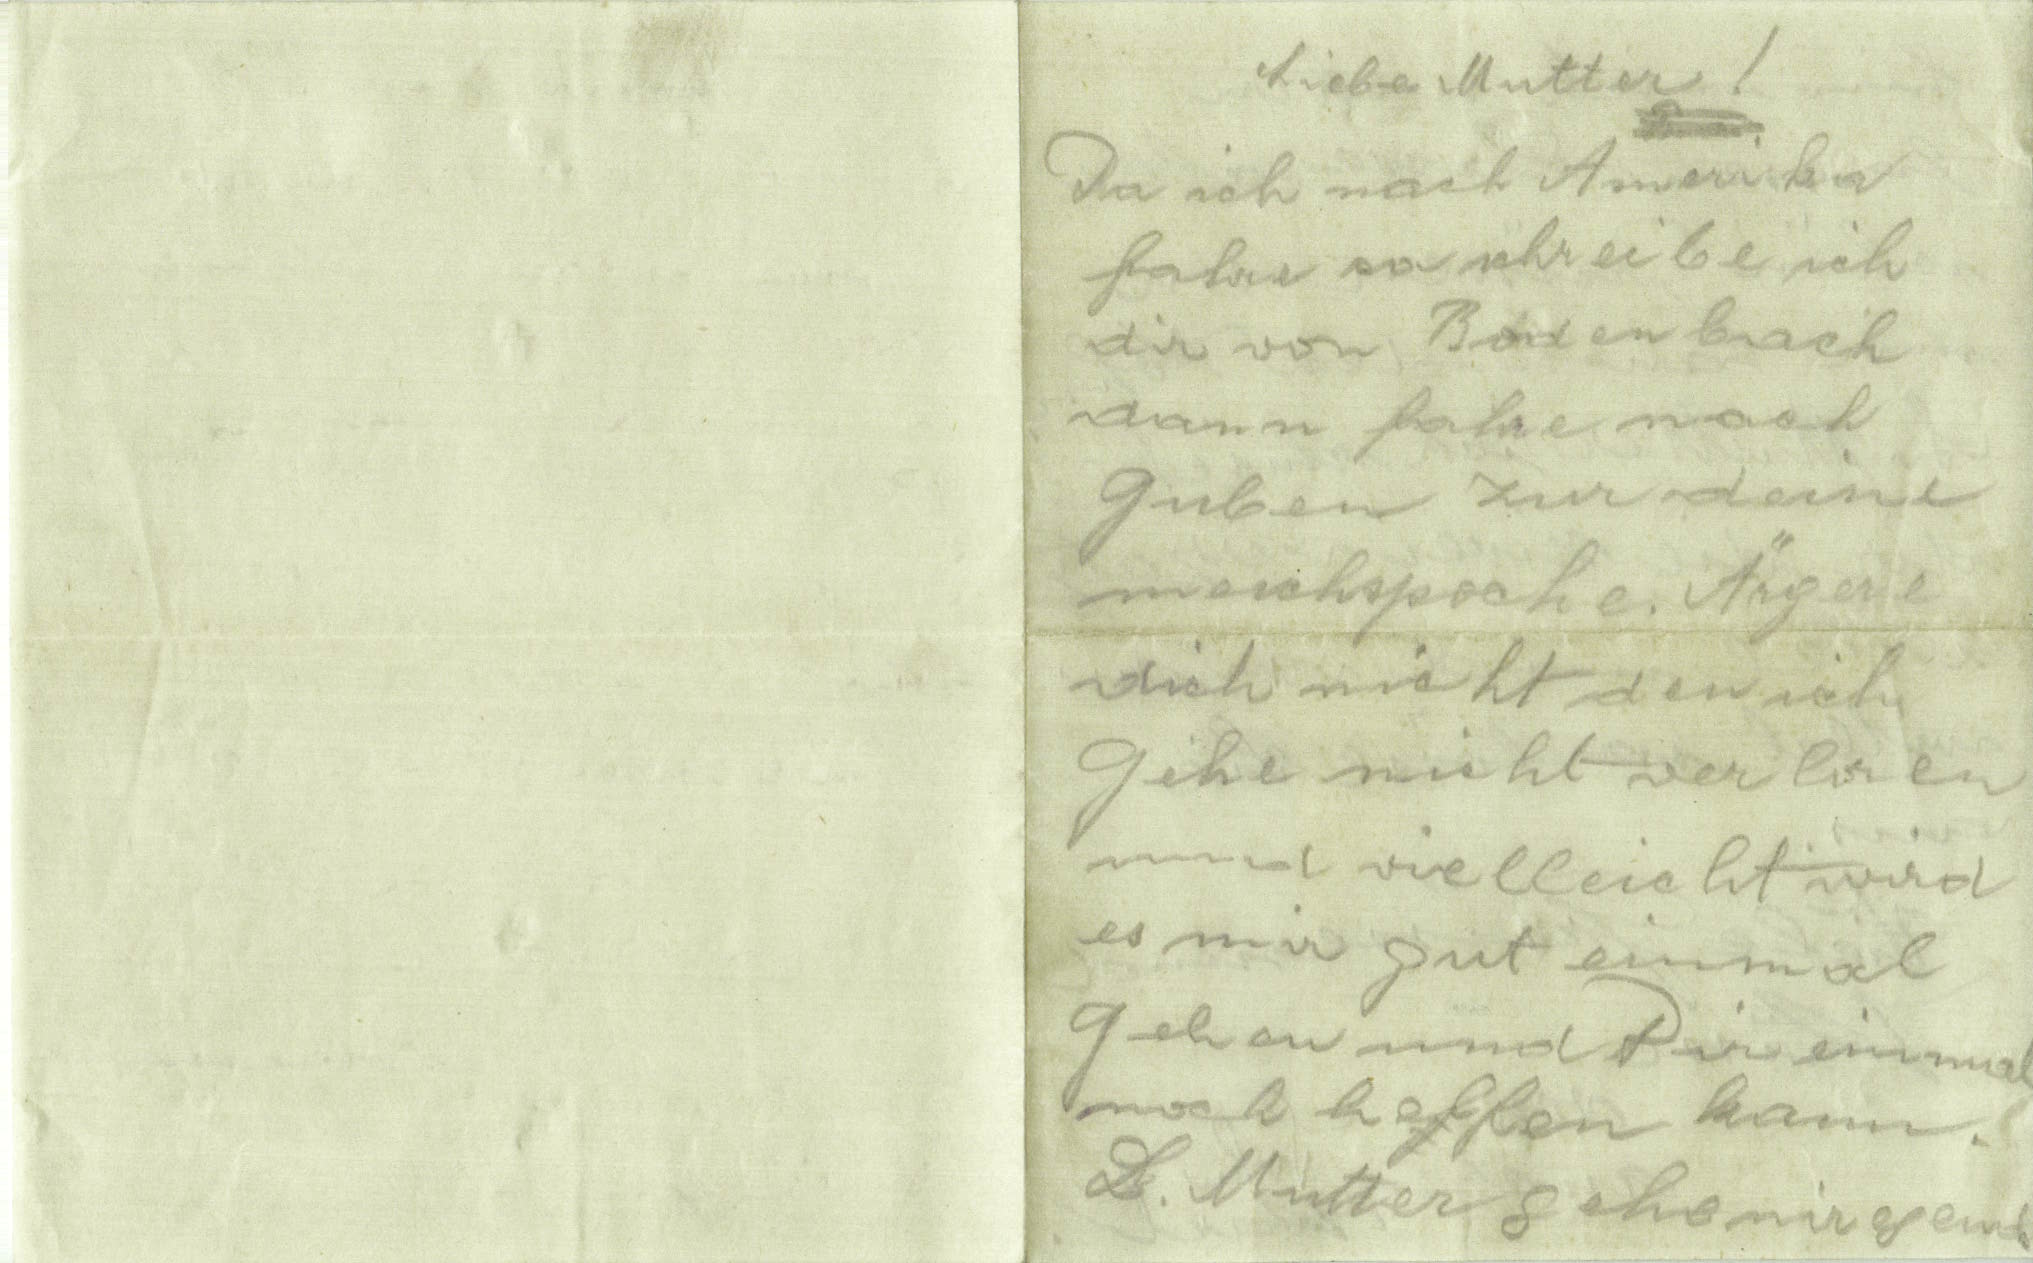 Liebe Mutter!
Da ich nach Amerika
fahre so schreibe ich
dir von Bodenbach
dann fahre nach
Guben zur deine
meischspoche. Ärgere
dich nicht den ich
Gehe nicht verloren
und vielleicht wird
es mir gut einmal
Gehen und Dir einmal
noch helfen kann.
L. Mutter gehe nirgend